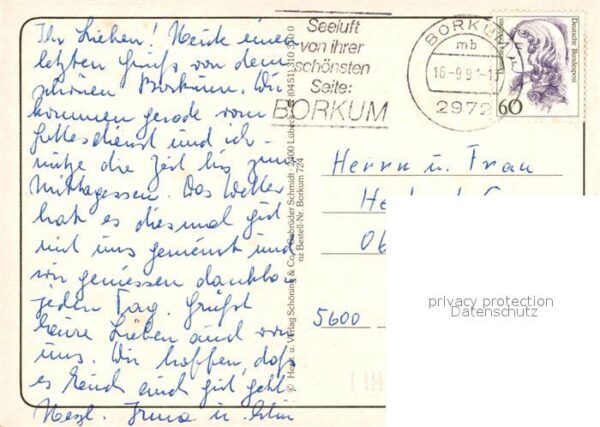 Ihr Lieben! Heute einen
letzten Gruß von dem
schönen Borkum. Wir
kommen gerade vom
Gottesdienst und ich
nütze die Zeit bis zum
Mittagessen. Das Wetter
hat es diesmal gut
mit uns gemeint und
wir geniessen dankbar
jeden Tag. Grüßt
Eure Lieben auch von
uns. Wir hoffen, daß
es Euch auch gut geht
Herzl. Irma u.
Seeluft
von ihrer
schönsten
Seite:
BORKUM
BORKUM
mb
2972
Deutsche Bundespost
60
© Hers. u. Verlag Schöning & Co. + Gebrüder Schmidt · 2400 Lübeck · (0451) 310 310
nz Bestell-Nr. Borkum 724
Herrn u. Frau
5600
privacy protection
Datenschutz